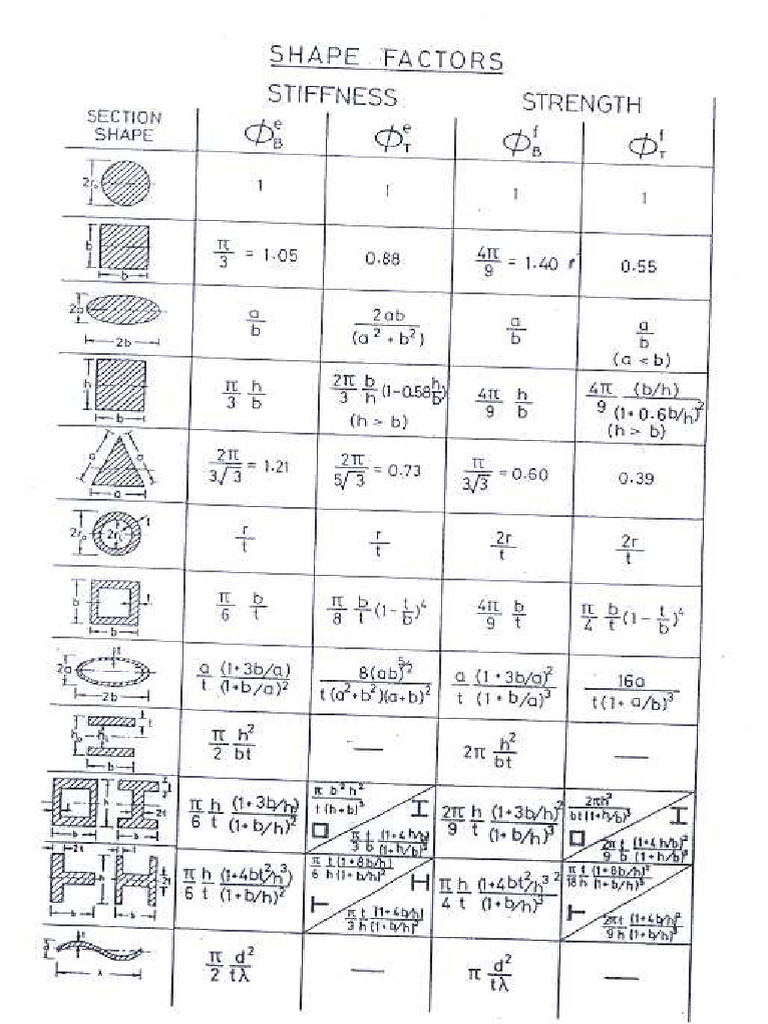 SHAPE FACTORS
STIFFNESS STRENGTH
SECTION SHAPE ϕ_B^e ϕ_T^e ϕ_B^f ϕ_T^f
1 1 1 1
b b π/3 = 1.05 0.88 4π/9 = 1.40 0.55
2a 2b a/b 2ab/(a² + b²) a/b a/b (a < b)
h b π/3 h/b 2π/3 b/h (1-0.58 h/b) (h > b) 4π/9 h/b 4π/9 (b/h)/(1+0.6b/h)² (h > b)
a a a 2π/3√3 = 1.21 2π/5√3 = 0.73 π/3√3 = 0.60 0.39
2r₀ t r/t r/t 2r/t 2r/t
b b t π/6 b/t π/8 b/t (1-t/b)⁴ 4π/9 b/t π/4 b/t (1-t/b)⁴
2a 2b t a/t (1+3b/a)/(1+b/a)² 8(ab)^5/2/t(a²+b²)(a+b)² a/t (1+3b/a)²/(1+b/a)³ 16a/t(1+a/b)³
b t π/2 h²/bt — 2π h²/bt —
h b b 2t π/6 h/t (1+3b/h)/(1+b/h)² π b² h²/t(h+b)³ π/3 t/b (1+4h/b)/(1+h/b)² 2π/9 h/t (1+3b/h)²/(1+b/h)³ 2πh²/bt(1+h/b)³ 2π/9 t/b (1+4h/b)²/(1+h/b)³
h b b π/6 h/t (1+4bt²/h³)/(1+b/h)² π/6 t/h (1+8b/h)/(1+b/h)² π/3 t/h (1+4b/h)/(1+b/h)² π/4 h/t (1+4bt²/h³)²/(1+b/h)³ π/18 t/h (1+8b/h)²/(1+b/h)³ 2π/9 t/h (1+4b/h)²/(1+b/h)³
t λ π/2 d²/tλ — π d²/tλ —